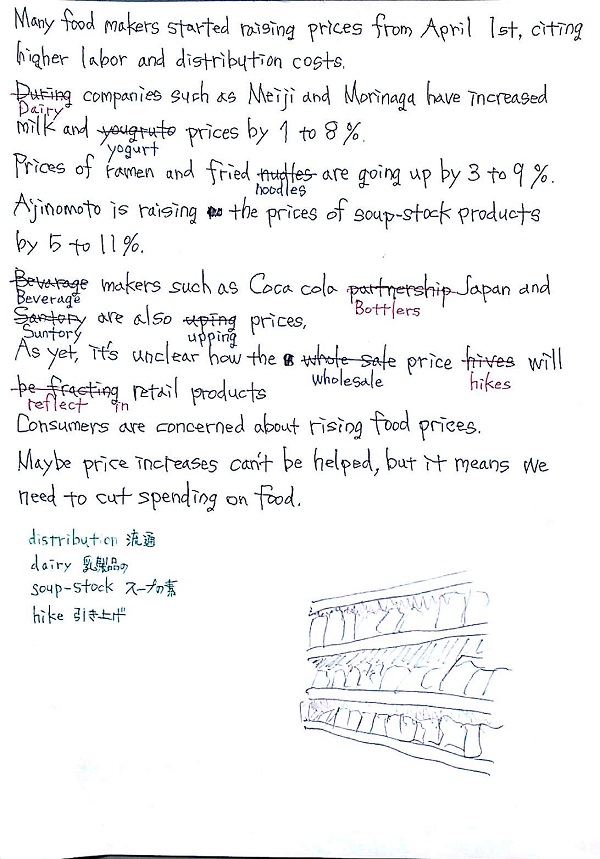 Many food makers started raising prices from April 1st, citing
higher labor and distribution costs.
During companies such as Meiji and Morinaga have increased
Dairy
milk and yougruto prices by 1 to 8%.
yogurt
Prices of ramen and fried nudles are going up by 3 to 9%.
noodles
Ajinomoto is raising the prices of soup-stock products
by 5 to 11%.
Bevarage makers such as Coca cola partnership Japan and
Beverage Bottlers
Santory are also uping prices,
Suntory upping
As yet, it's unclear how the whole sale price hives will
wholesale hikes
be fracting retail products
reflect in
Consumers are concerned about rising food prices.
Maybe price increases can't be helped, but it means we
need to cut spending on food.
distribution 流通
dairy 乳製品の
soup-stock スープの素
hike 引き上げ